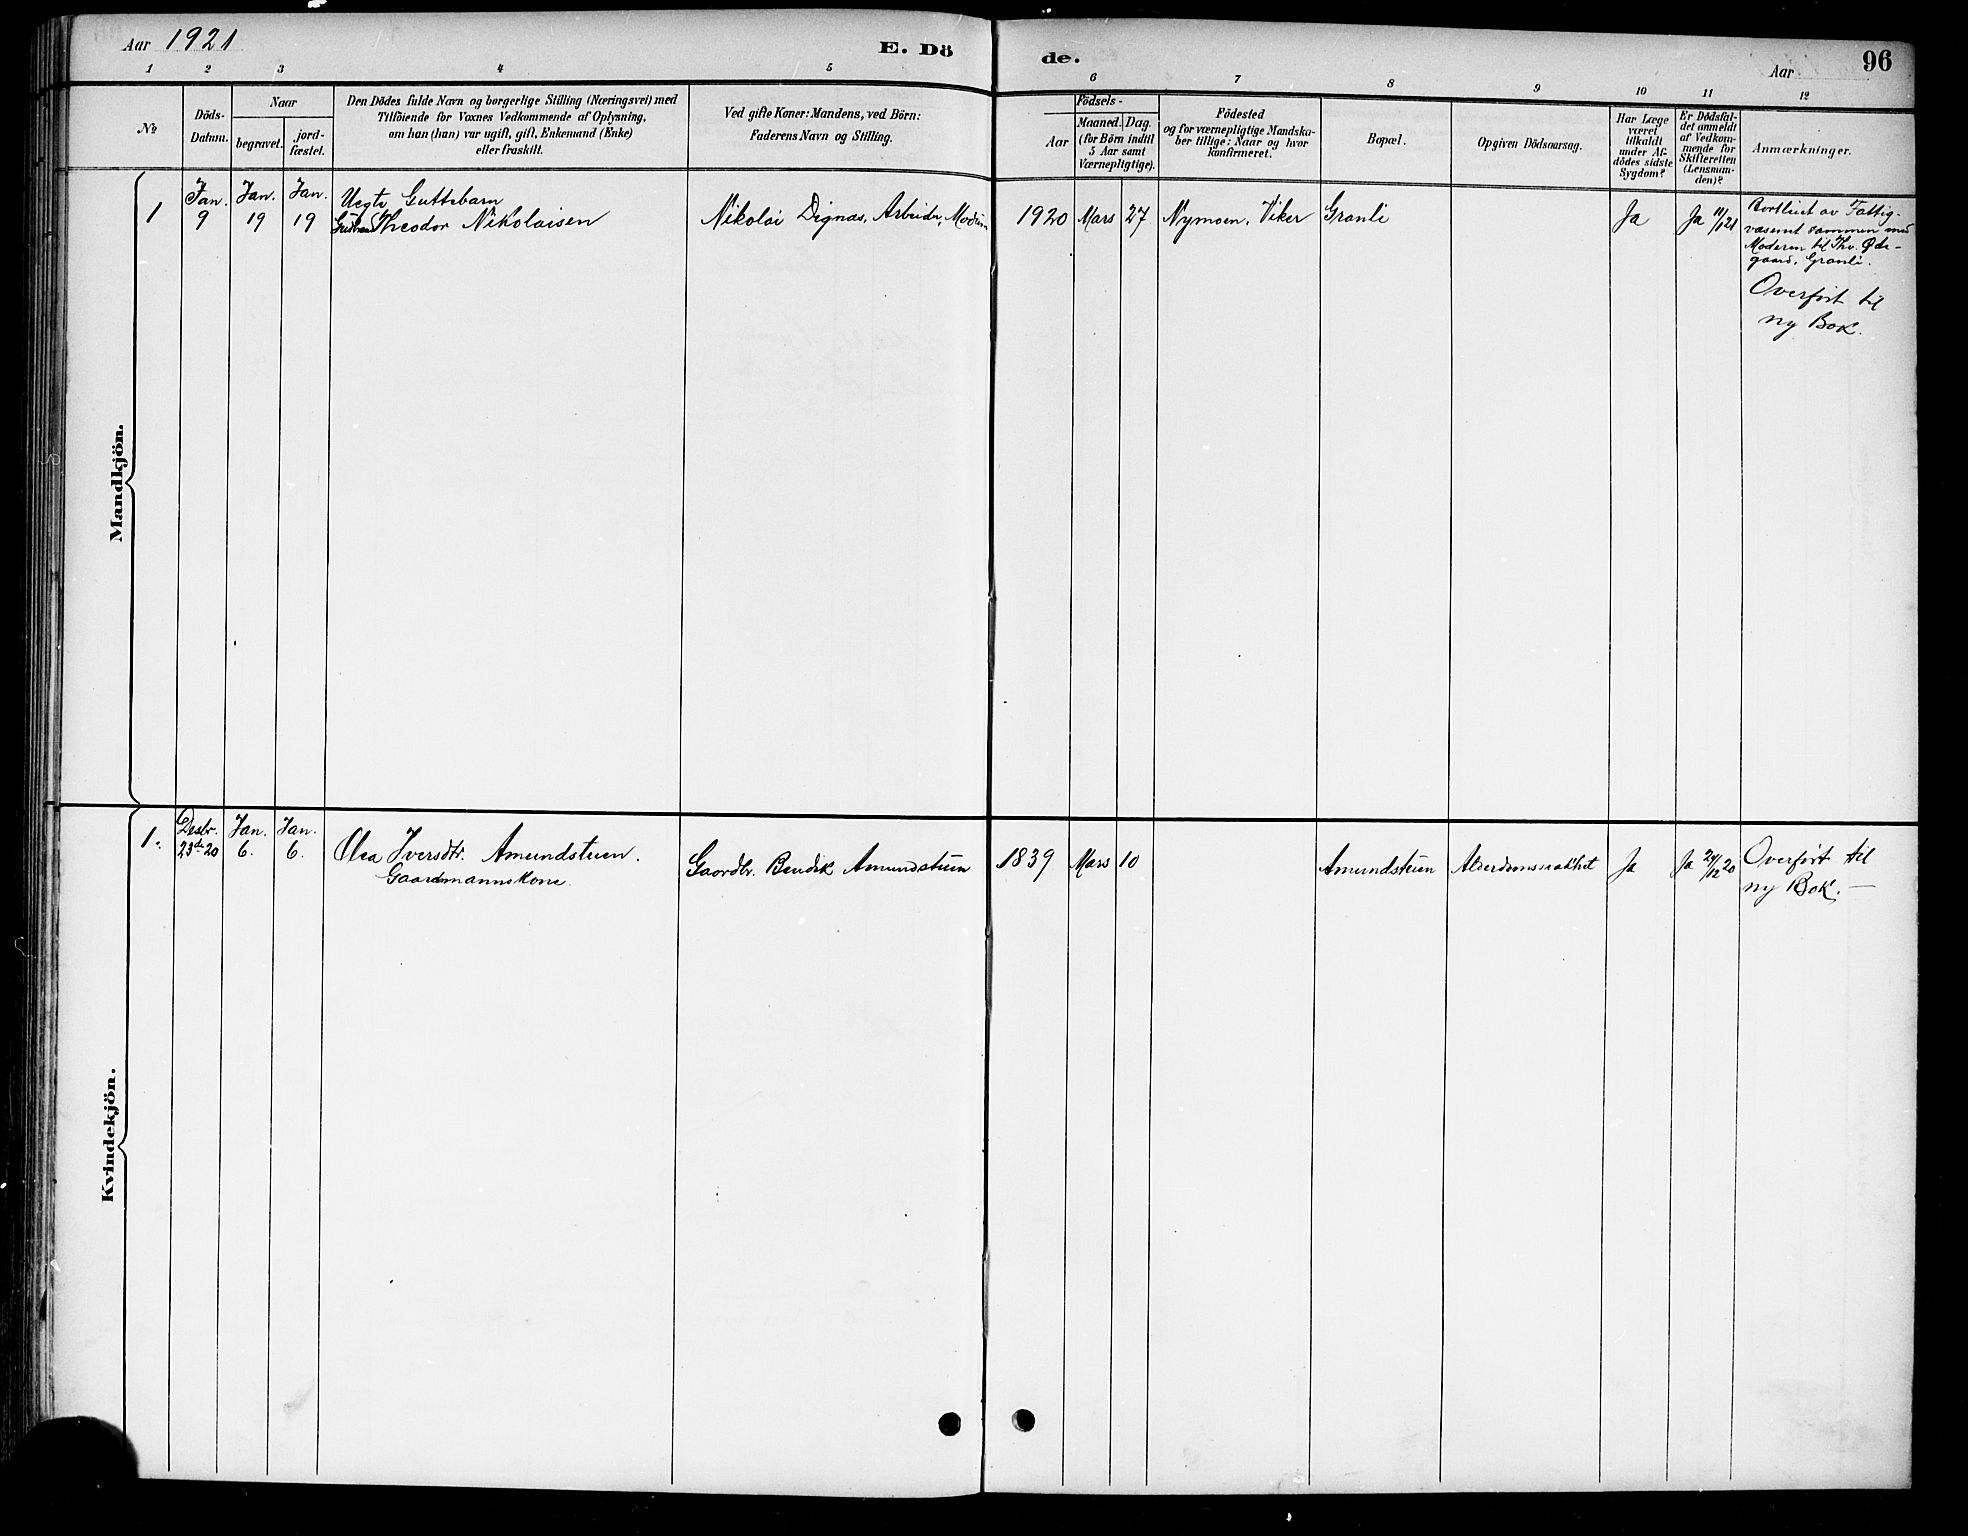 Aar 1921
E. Dö
de.
Aar
96
1 2 3 4 5
6 7 8 9 10 11 12
№
Döds-
Datum.
Naar
begravet.
jord-
fæstet.
Den Dödes fulde Navn og borgerlige Stilling (Næringsvei) med
Tilföiende for Voxnes Vedkommende af Oplysning,
om han (hun) var ugift, gift, Enkemand (Enke)
eller fraskilt.
Ved gifte Koner: Mandens, ved Börn:
Faderens Navn og Stilling.
Födsels-
Aar
Maaned. Dag.
(for Börn indtil
5 Aar samt
Værnepligtige).
Födested
og for værnepligtige Mandska-
ber tillige: Naar og hvor
konfirmeret.
Bopæl.
Opgiven Dödsaarsag.
Har Læge
været
tilkaldt
under Af-
dödes sidste
Sygdom?
Er Dödsfal-
det anmeldt
af Vedkom-
mende for
Skifteretten
(Lensman-
den)?
Anmærkninger.
Mandkjön.
1
Jan.
9
Jan.
19
Jan.
19
Uegte Guttebarn
Theodor Nikolaisen
Nikolai Dignas, Arbeider, Modum
1920 Mars 27
Nymoen, Viker
Granli
Ja
Ja 11/1 21
Bortliet av Fattig-
væsenet sammen med
Moderen til Thv. Øde-
gaard, Granli.
Overført til
ny Bok.
Kvindekjön.
1.
Desbr.
23de 20
Jan.
6.
Jan.
6.
Olea Iversdtr. Amundstuen.
Gaardmannskone.
Gaardbr. Bendik Amundstuen
1839 Mars 10
Amundstuen
Alderdomssvakhet
Ja
Ja 24/12 20
Overført til
ny Bok. —